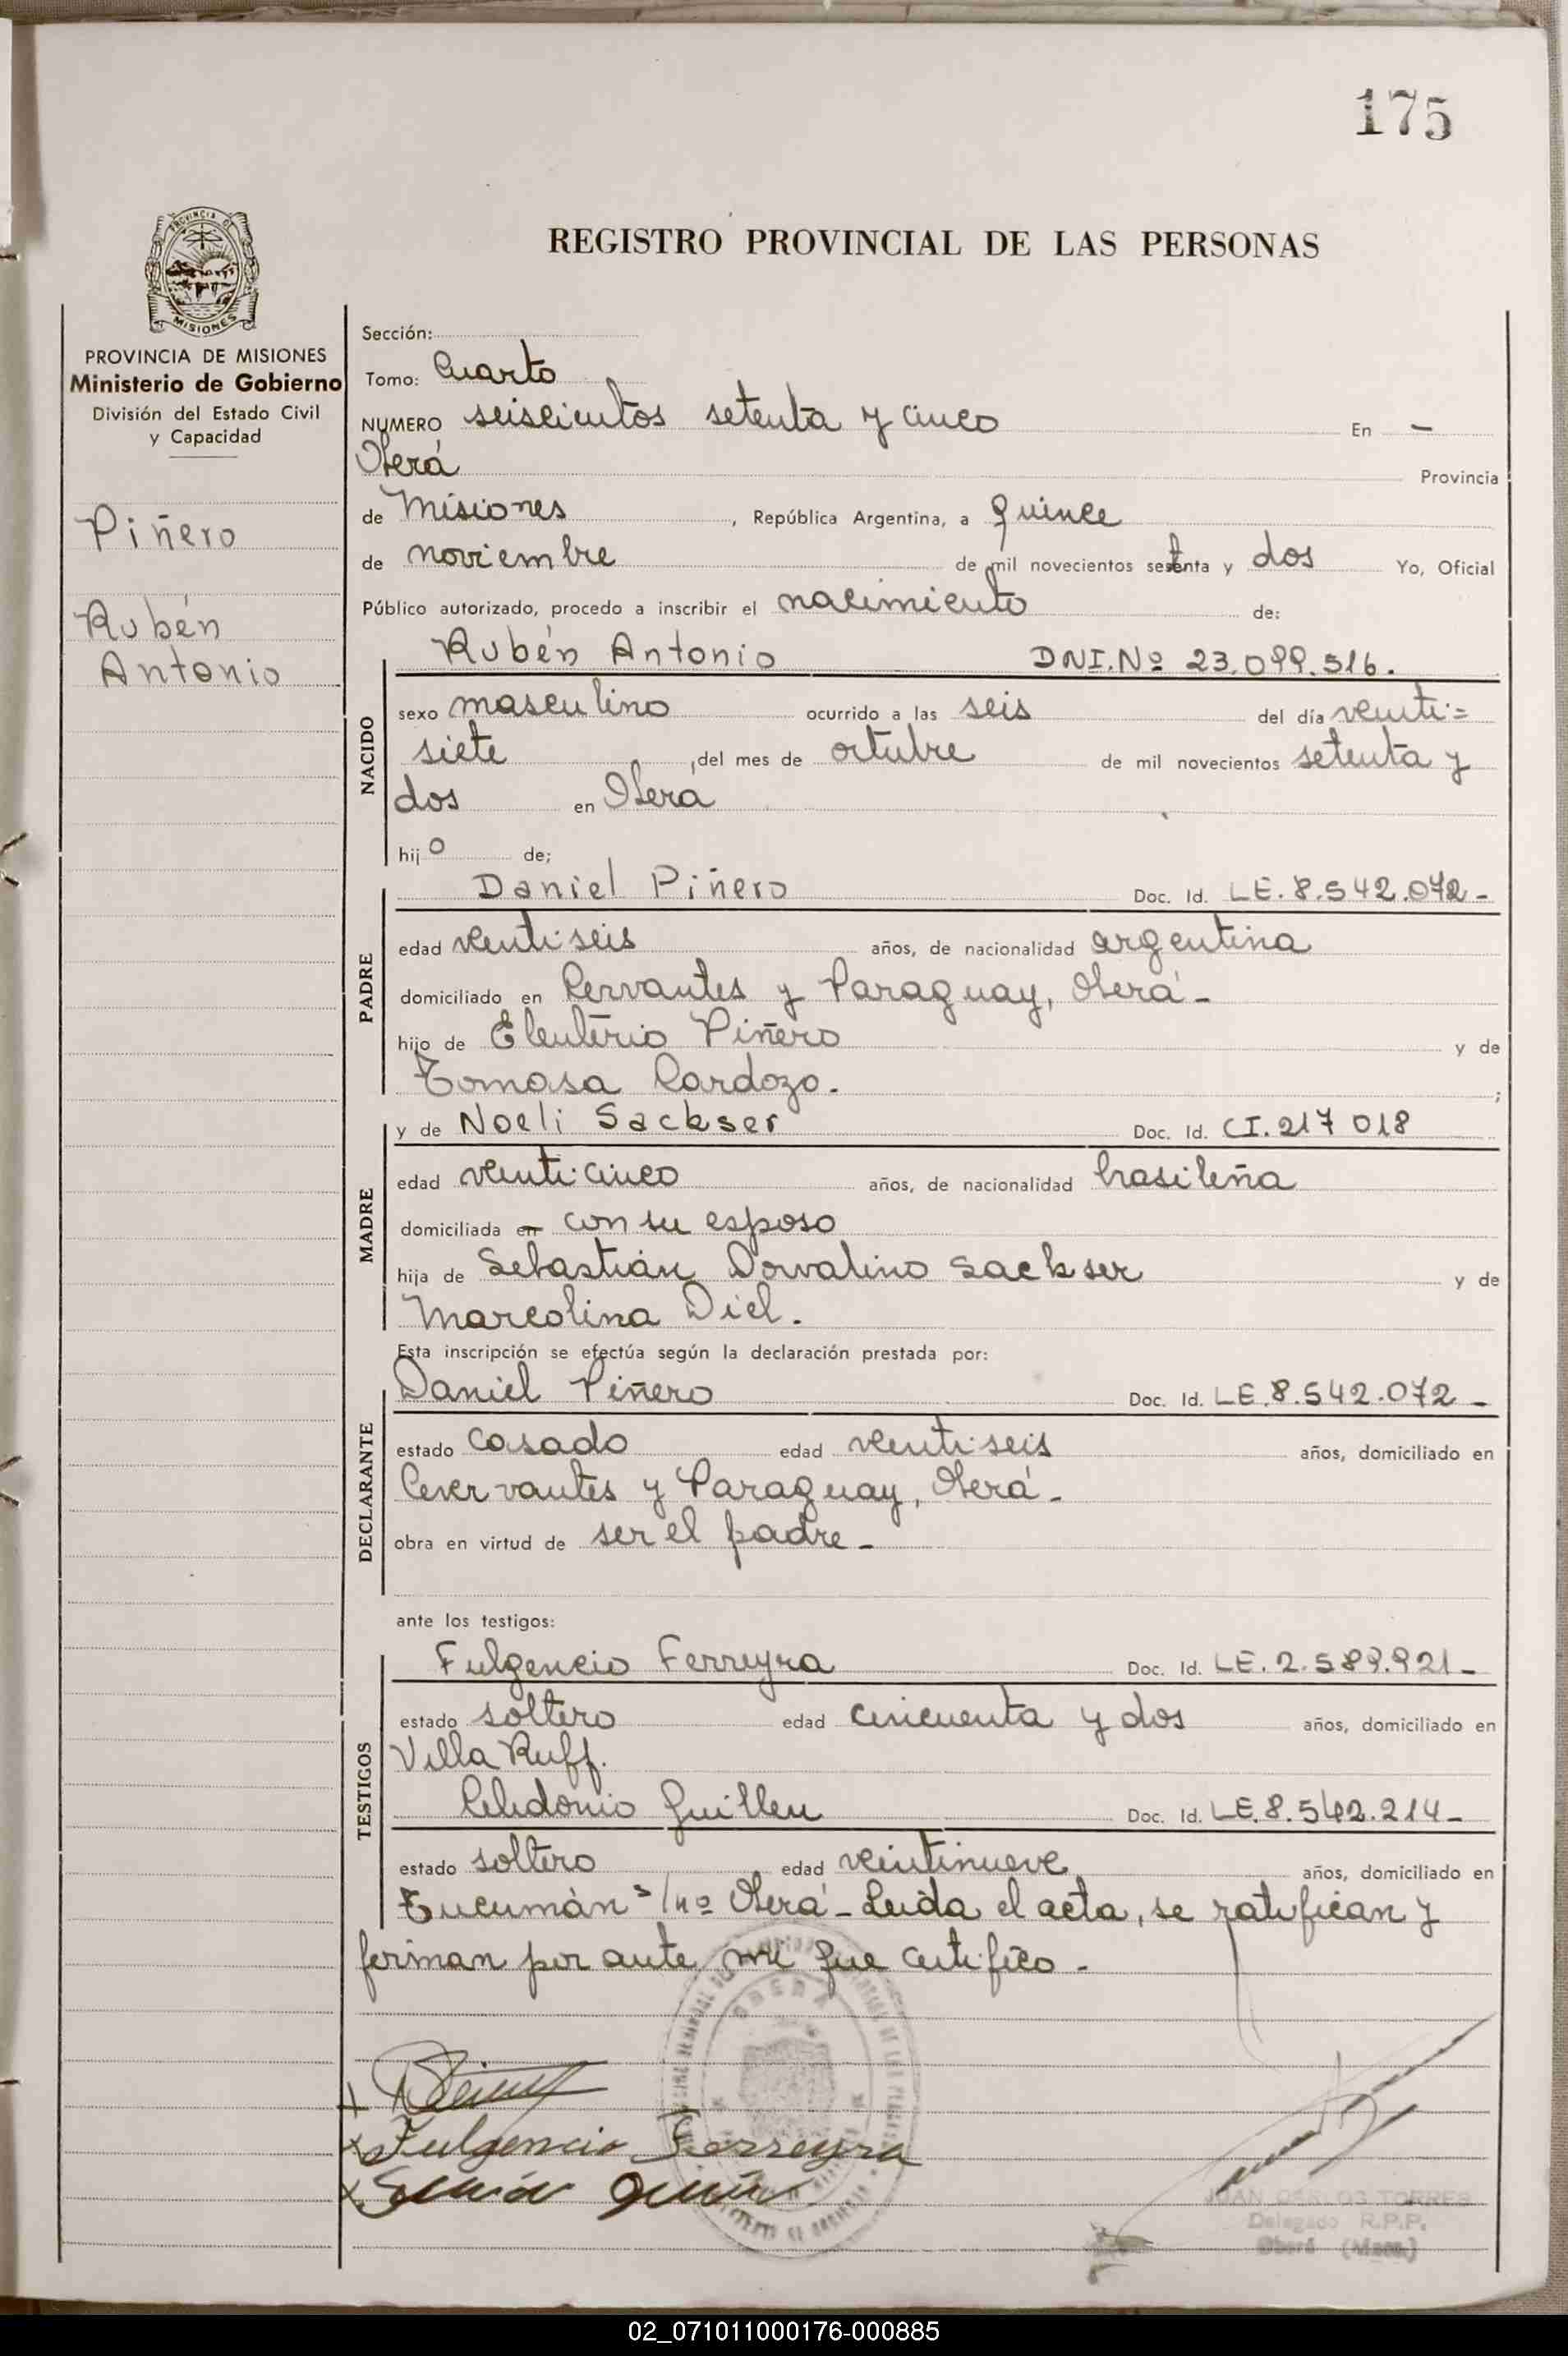 175
PROVINCIA DE MISIONES
Ministerio de Gobierno
División del Estado Civil
y Capacidad
Piñero
Rubén
Antonio
REGISTRO PROVINCIAL DE LAS PERSONAS
Sección:
Tomo: Cuarto
NUMERO seiscientos setenta y cinco En -
Oberá Provincia
de Misiones, República Argentina, a quince
de noviembre de mil novecientos setenta y dos Yo, Oficial
Público autorizado, procedo a inscribir el nacimiento de:
Rubén Antonio DNI. Nº 23.099.516.
NACIDO
sexo masculino ocurrido a las seis del día venti=
siete, del mes de octubre de mil novecientos setenta y
dos en Obera
hijo de;
PADRE
Daniel Piñero Doc. Id. LE. 8.542.072-
edad ventiseis años, de nacionalidad argentina
domiciliado en Cervantes y Paraguay, Oberá-
hijo de Eleuterio Piñero y de
Tomasa Cardozo. ;
MADRE
y de Noeli Sackser Doc. Id. CI. 217 018
edad venticinco años, de nacionalidad brasileña
domiciliada en con su esposo
hija de Sebastián Dorvalino Sackser y de
Marcolina Diel.
Esta inscripción se efectúa según la declaración prestada por:
DECLARANTE
Daniel Piñero Doc. Id. LE. 8.542.072-
estado casado edad ventiseis años, domiciliado en
Cever vantes y Paraguay, Oberá-
obra en virtud de ser el padre-
ante los testigos:
TESTIGOS
Fulgencio Ferreyra Doc. Id. LE. 2.589.921-
estado soltero edad cincuenta y dos años, domiciliado en
Villa Ruff.
Celedonio Guillen Doc. Id. LE. 8.542.214-
estado soltero edad veintinueve años, domiciliado en
Tucumán s/nº Oberá- Leida el acta, se ratifican y
firman por ante mi que certifico-
Fulgencio Ferreyra
JUAN CARLOS TORRES
Delegado R.P.P.
Oberá (Mnes.)
02_071011000176-000885